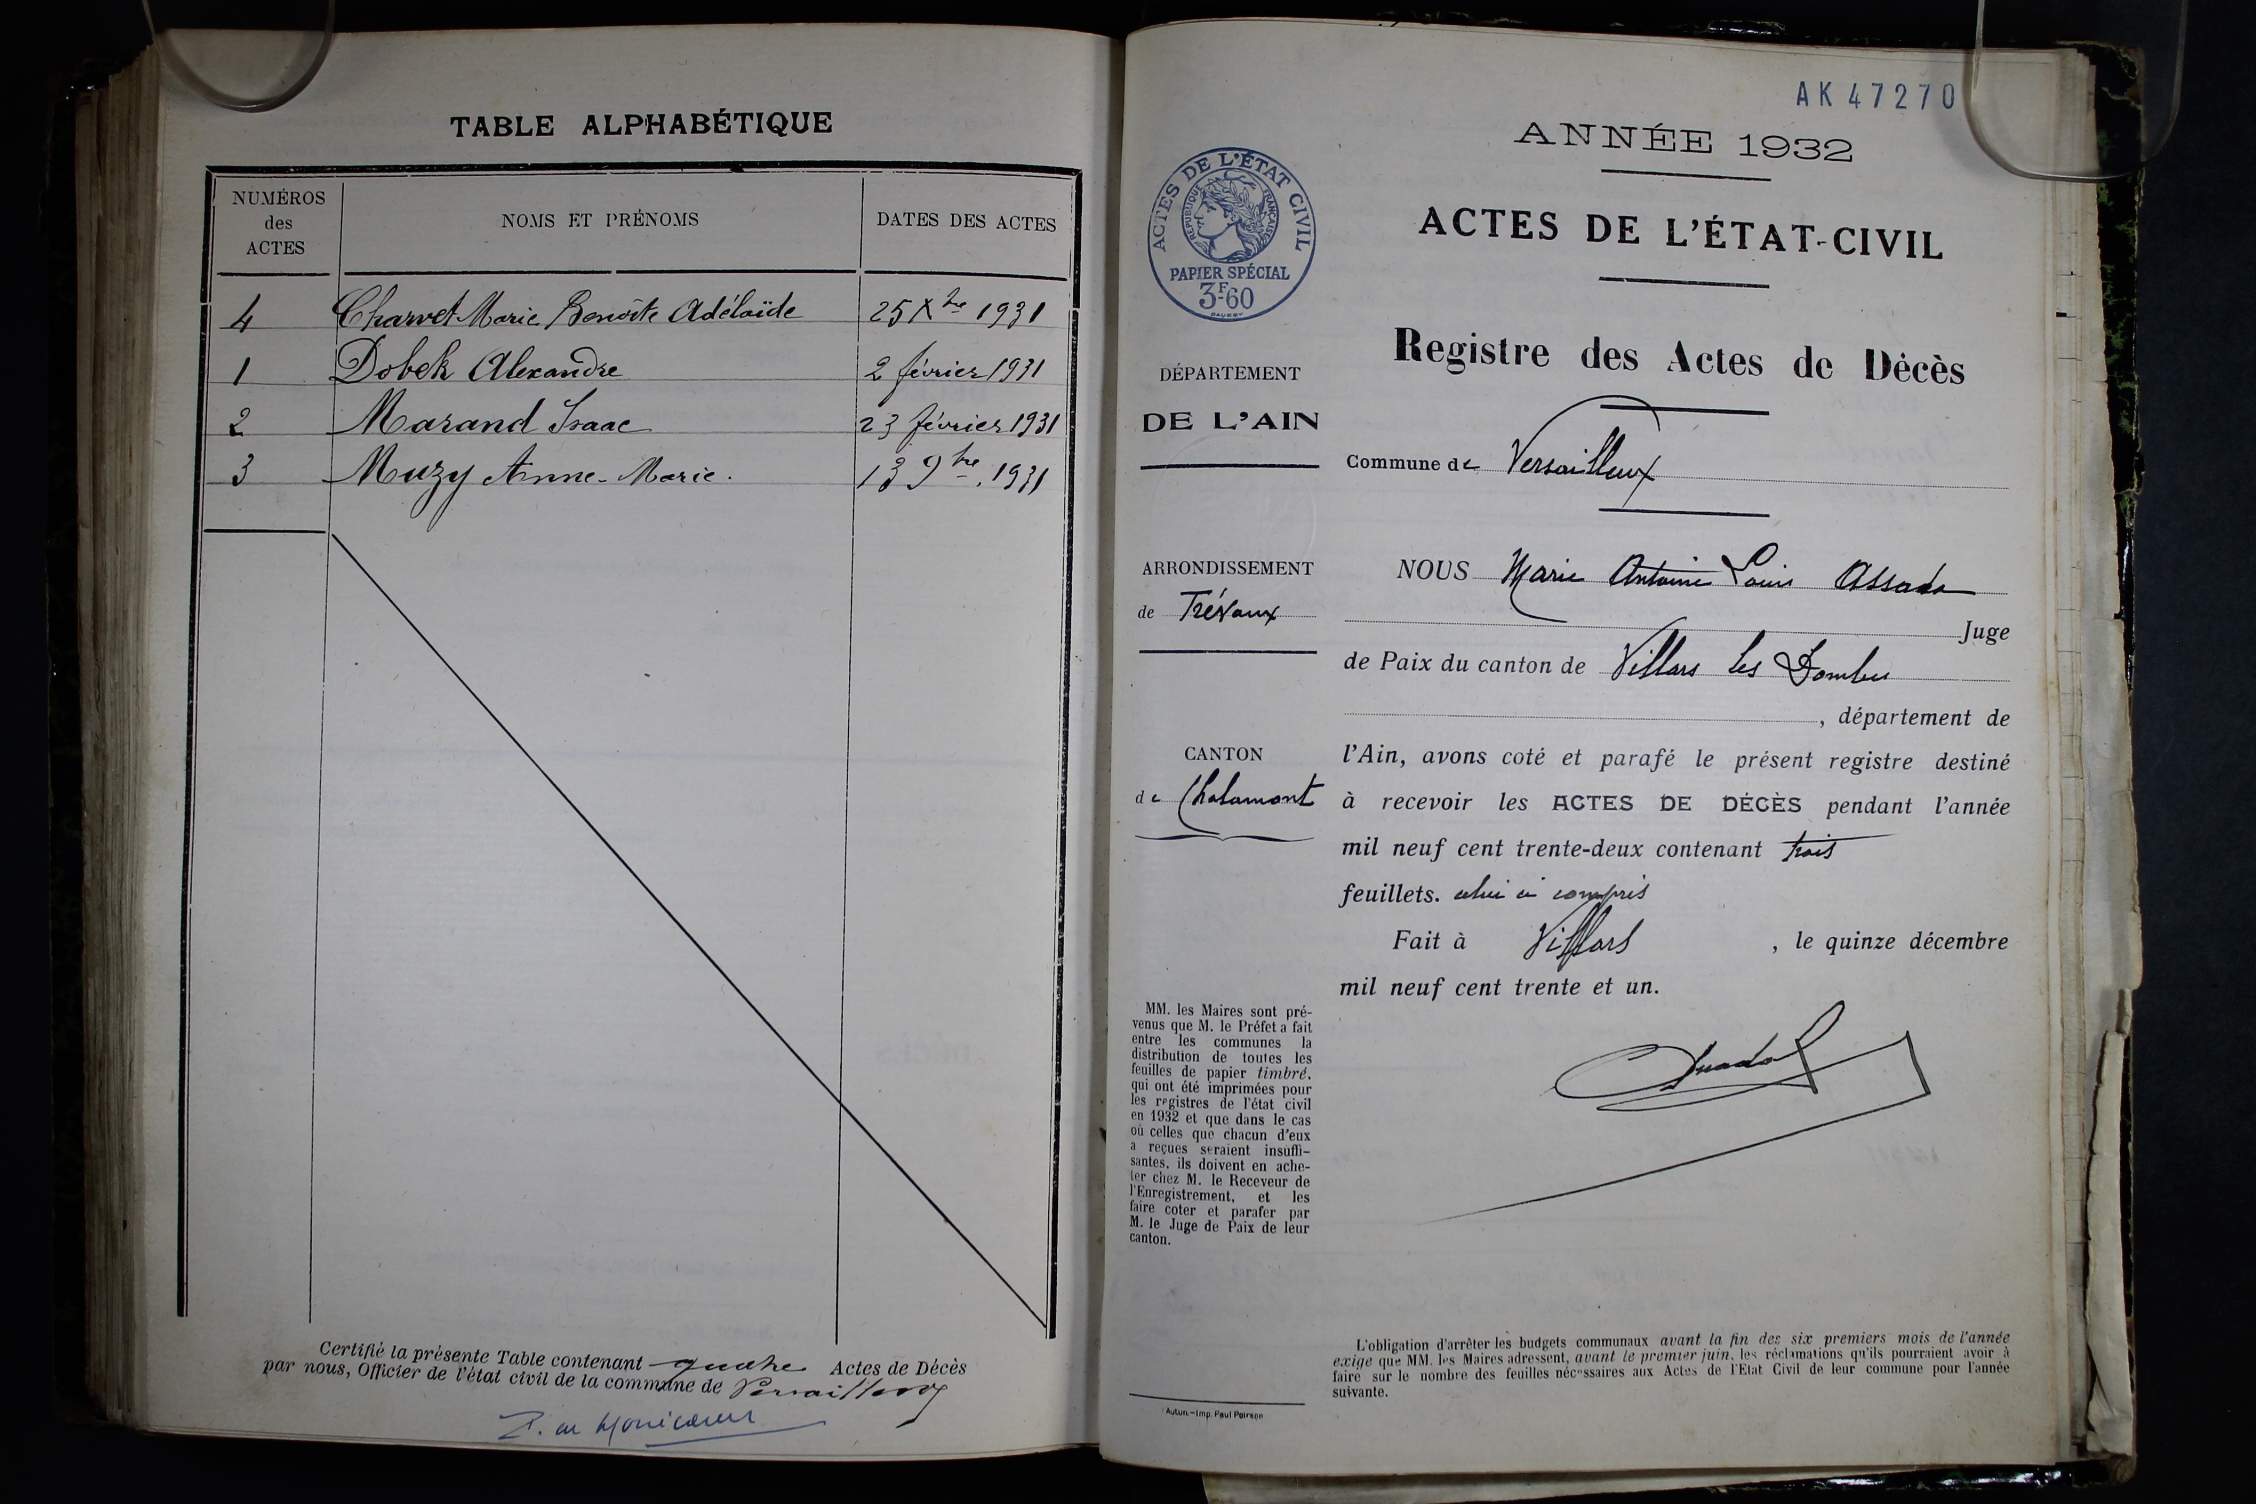 TABLE ALPHABÉTIQUE
NUMÉROS des ACTES
NOMS ET PRÉNOMS
DATES DES ACTES
4 Charvet Marie Benoîte Adélaïde 25 Xbre 1931
1 Dobek Alexandre 2 février 1931
2 Marand Isaac 23 février 1931
3 Muzy Anne-Marie. 13 9bre. 1931
Certifié la présente Table contenant quatre Actes de Décès
par nous, Officier de l'état civil de la commune de Versailleux
AK 47270
ANNÉE 1932
ACTES DE L'ÉTAT CIVIL
RÉPUBLIQUE FRANÇAISE
PAPIER SPÉCIAL
3F60
ACTES DE L'ÉTAT-CIVIL
Registre des Actes de Décès
DÉPARTEMENT
DE L'AIN
Commune de Versailleux
ARRONDISSEMENT
de Trévoux
CANTON
de Chalamont
NOUS Marie Antoine Louis
Juge
de Paix du canton de Villars les Dombes
, département de
l'Ain, avons coté et parafé le présent registre destiné
à recevoir les ACTES DE DÉCÈS pendant l'année
mil neuf cent trente-deux contenant trois
feuillets. celui ci compris
Fait à Villars , le quinze décembre
mil neuf cent trente et un.
MM. les Maires sont pré-
venus que M. le Préfet a fait
entre les communes la
distribution de toutes les
feuilles de papier timbré,
qui ont été imprimées pour
les registres de l'état civil
en 1932 et que dans le cas
où celles que chacun d'eux
a reçues seraient insuffi-
santes, ils doivent en ache-
ter chez M. le Receveur de
l'Enregistrement, et les
faire coter et parafer par
M. le Juge de Paix de leur
canton.
L'obligation d'arrêter les budgets communaux avant la fin des six premiers mois de l'année
exige que MM. les Maires adressent, avant le premier juin, les réclamations qu'ils pourraient avoir à
faire sur le nombre des feuilles nécessaires aux Actes de l'Etat Civil de leur commune pour l'année
suivante.
Autun.-Imp. Paul Poirson